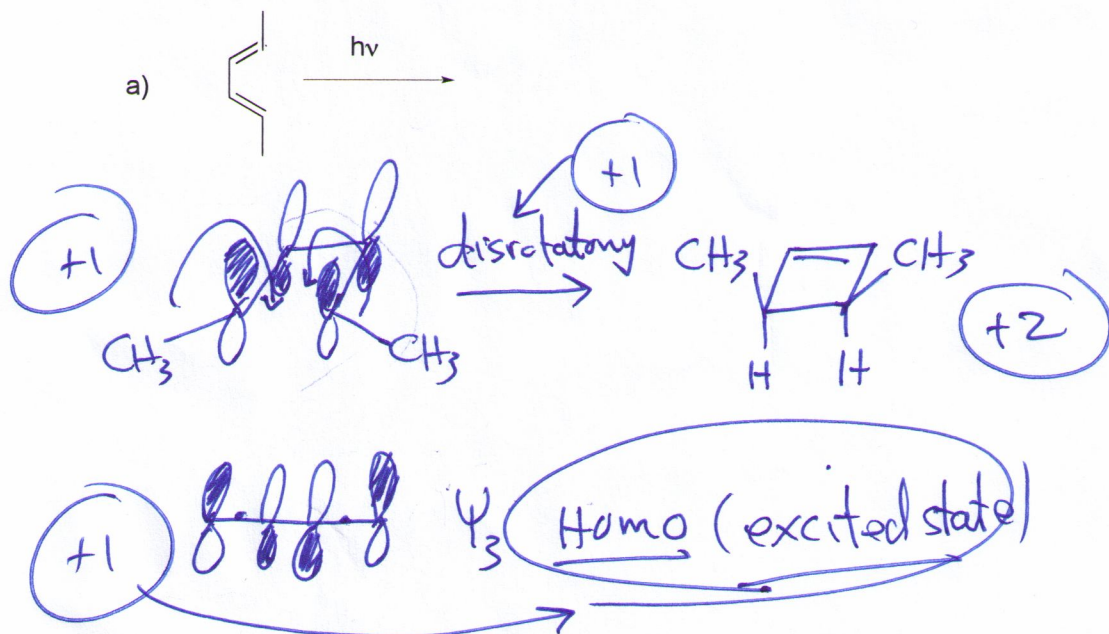 hν
a)
+1
+1
disrotatory
CH3
CH3
CH3
CH3
H
H
+2
+1
Ψ3 Homo (excited state)